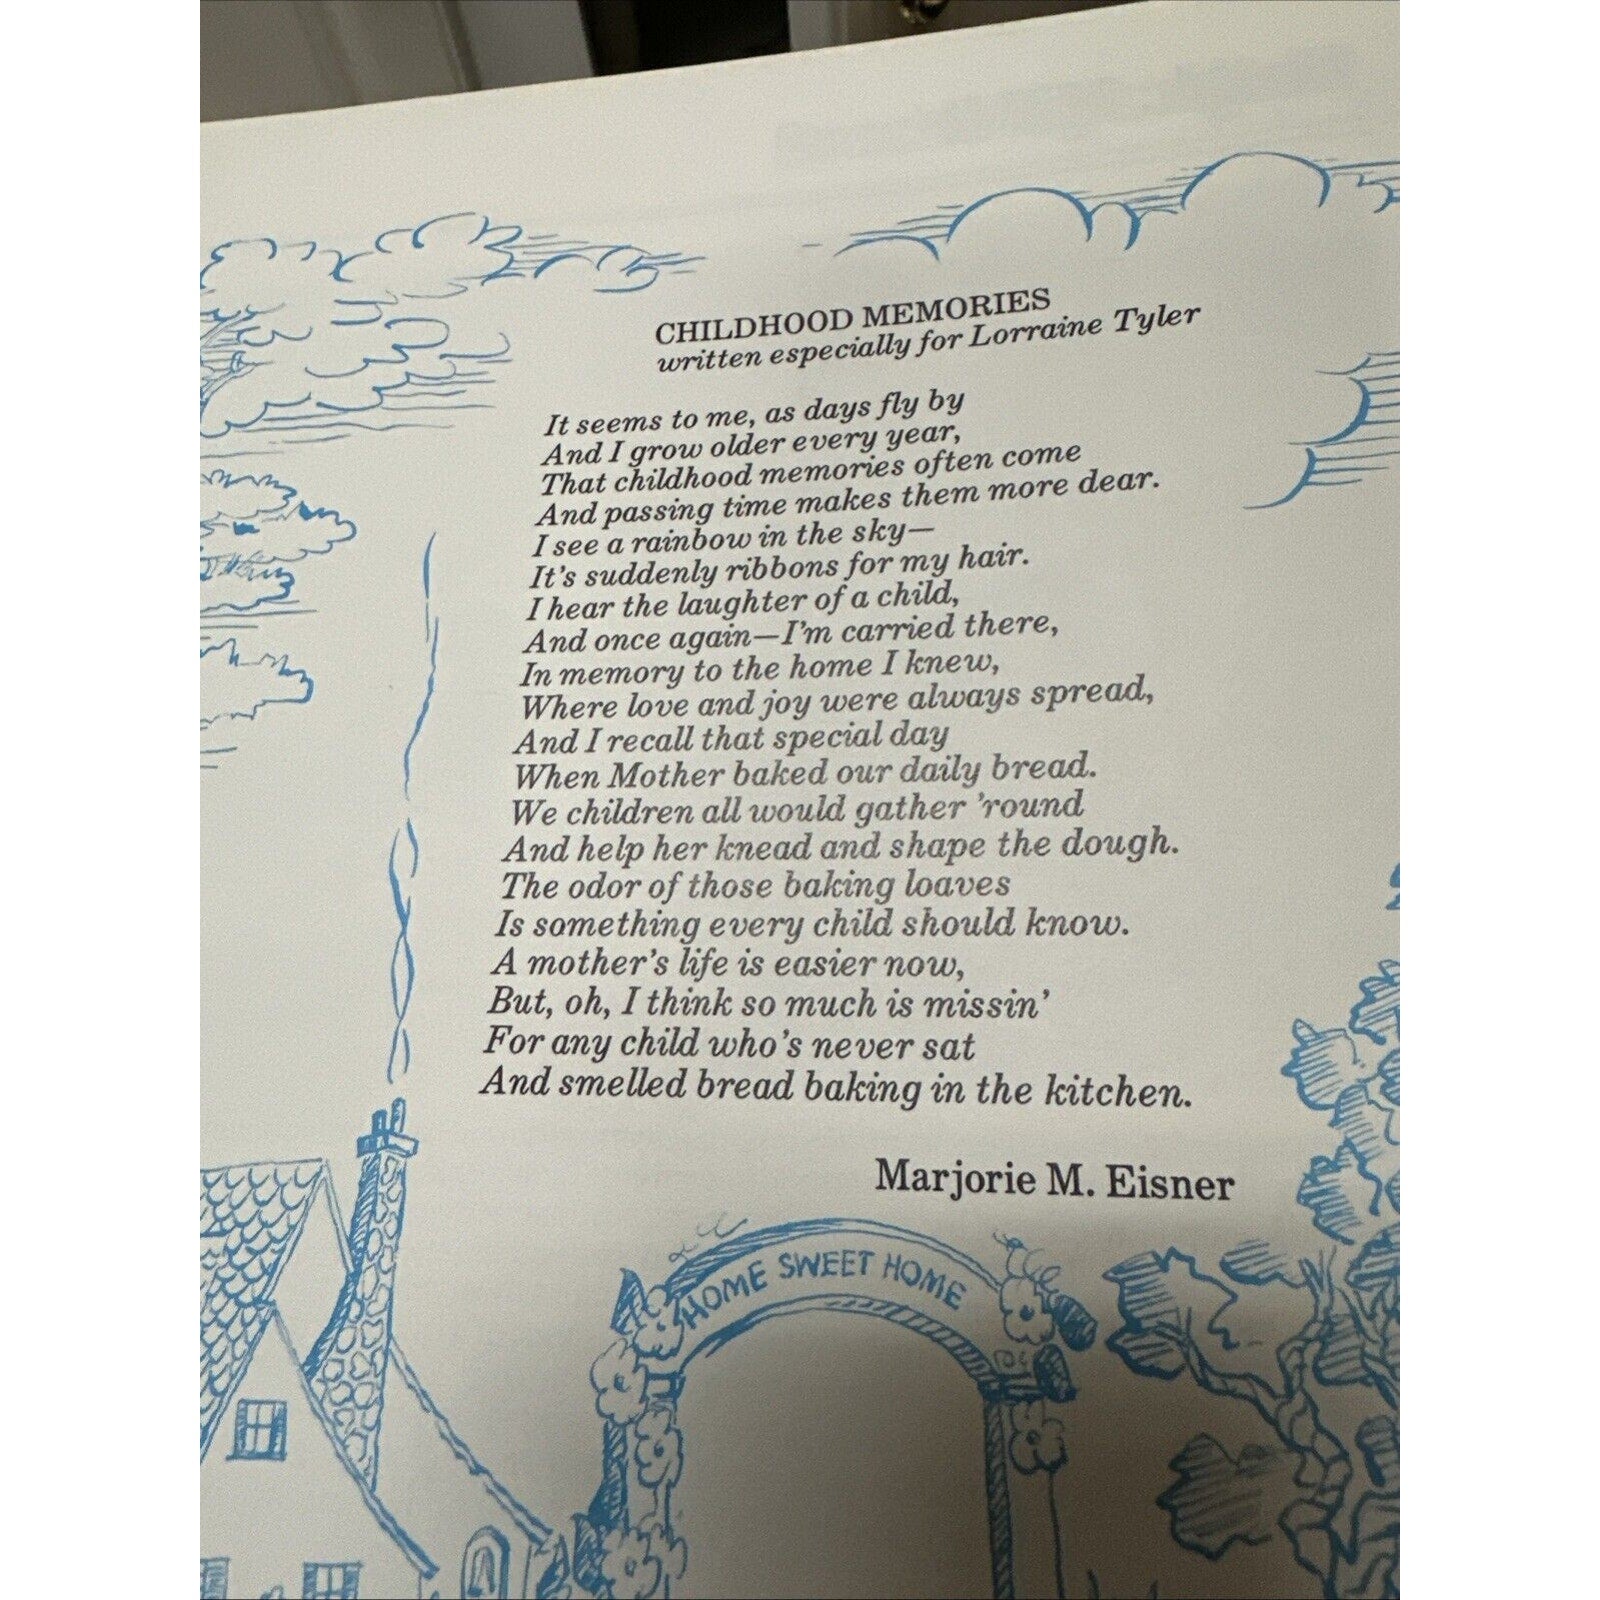 CHILDHOOD MEMORIES
written especially for Lorraine Tyler
It seems to me, as days fly by
And I grow older every year,
That childhood memories often come
And passing time makes them more dear.
I see a rainbow in the sky—
It's suddenly ribbons for my hair.
I hear the laughter of a child,
And once again—I'm carried there,
In memory to the home I knew,
Where love and joy were always spread,
And I recall that special day
When Mother baked our daily bread.
We children all would gather 'round
And help her knead and shape the dough.
The odor of those baking loaves
Is something every child should know.
A mother's life is easier now,
But, oh, I think so much is missin'
For any child who's never sat
And smelled bread baking in the kitchen.
Marjorie M. Eisner
HOME SWEET HOME